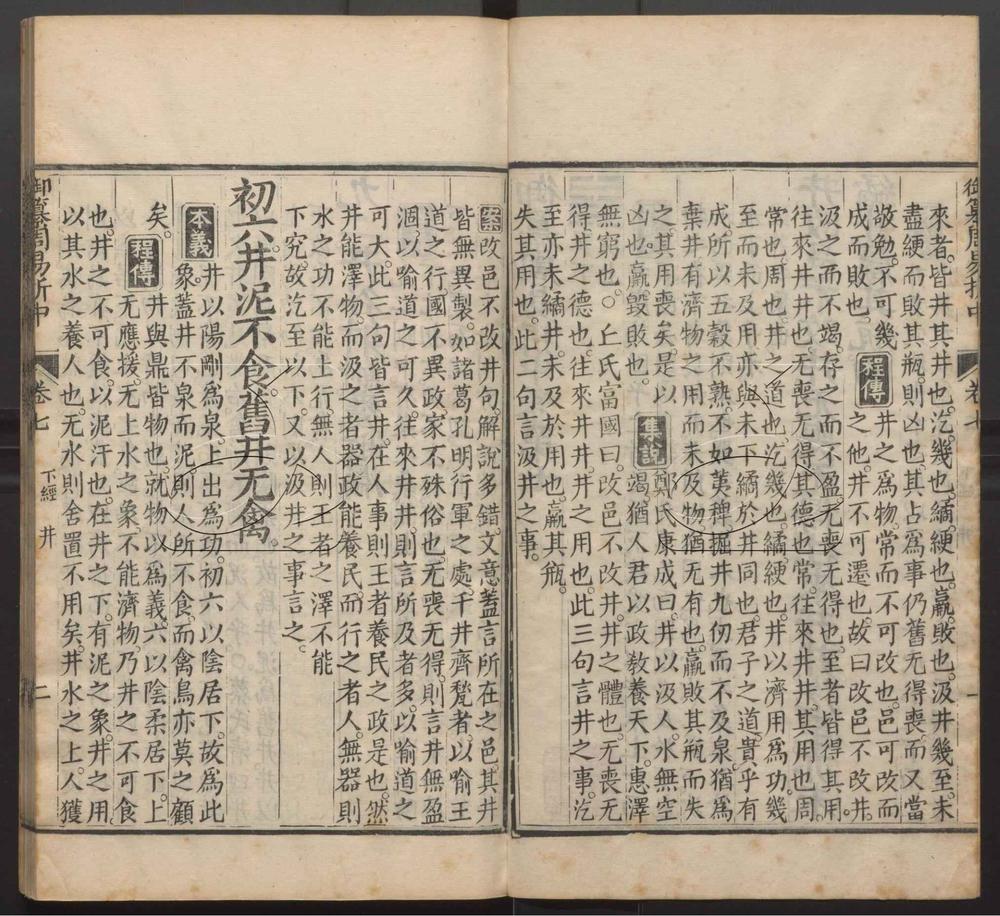 御纂周易折中
卷七
一
來者皆井其井也汔幾也繘綆也羸敗也汲井幾至未
盡綆而敗其瓶則凶也其占爲事仍舊无得喪而又當
敬勉不可幾
成而敗也
程傳
井之爲物常而不可改也邑可改而
之他井不可遷也故曰改邑不改井
汲之而不竭存之而不盈无喪无得也至者皆得其用
往來井井也无喪无得其德也常往來井井其用也周
常也周也井之道也汔幾也繘綆也井以濟用爲功幾
至而未及用亦與未下繘於井同也君子之道貴乎有
成所以五穀不熟不如荑稗掘井九仞而不及泉猶爲
棄井有濟物之用而未及物猶无有也羸敗其瓶而失
之其用喪矣是以
凶也羸毀敗也
集說
鄭氏康成曰井以汲人水無空
竭猶人君以政敎養天下惠澤
無窮也○丘氏富國曰改邑不改井井之體也无喪无
得井之德也往來井井井之用也此三句言井之事汔
至亦未繘井未及於用也羸其瓶
失其用也此二句言汲井之事
案改邑不改井句解說多錯文意蓋言所在之邑其井
皆無異製如諸葛孔明行軍之處千井齊甃者以喻王
道之行國不異政家不殊俗也无喪无得則言井無盈
涸以喻道之可久往來井井則言所及者多以喻道之
可大此三句皆言井在人事則王者養民之政是也然
井能澤物而汲之者器政能養民而行之者人無器則
水之功不能上行無人則王者之澤不能
下究故汔至以下又以汲井之事言之
初六井泥不食舊井无禽
本義
井以陽剛爲泉上出爲功初六以陰居下故爲此
象蓋井不泉而泥則人所不食而禽鳥亦莫之顧
矣
程傳
井與鼎皆物也就物以爲義六以陰柔居下上
无應援无上水之象不能濟物乃井之不可食
也井之不可食以泥汙也在井之下有泥之象井之用
以其水之養人也无水則舍置不用矣井水之上人獲
御纂周易折中
卷七
下經
井
二